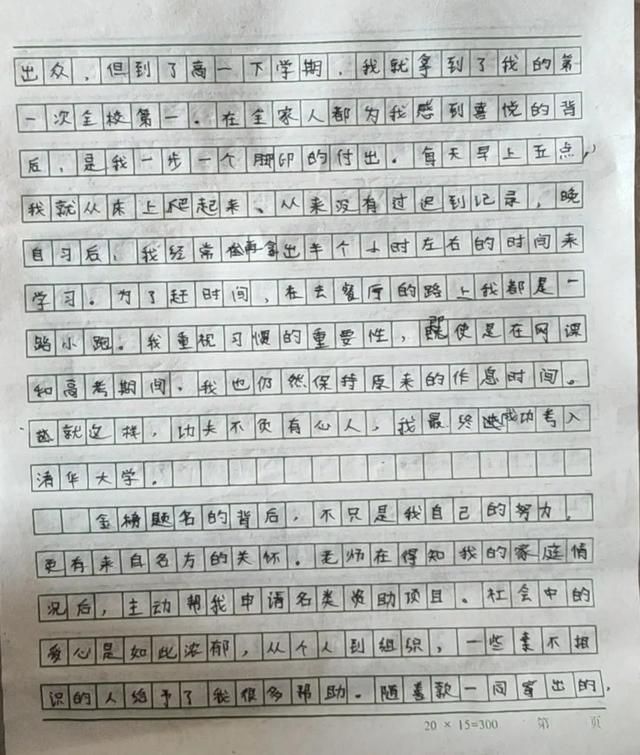 出众，但到了高一下学期，我就拿到了我的第
一次全校第一。在全家人都为我感到喜悦的背
后，是我一步一个脚印的付出。每天早上五点，
我就从床上爬起来、从来没有过迟到记录，晚
自习后，我经常再拿出半个小时左右的时间来
学习。为了赶时间，在去餐厅的路上我都是一
路小跑。我重视习惯的重要性，即使是在网课
和高考期间，我也仍然保持原来的作息时间。
就这样，功夫不负有心人，我最终成功考入
清华大学。
金榜题名的背后，不只是我自己的努力，
更有来自各方的关怀。老师在得知我的家庭情
况后，主动帮我申请各类资助项目。社会中的
爱心是如此浓郁，从个人到组织，一些素不相
识的人给予了我很多帮助。随善款一同寄出的，
20 × 15=300 第 页